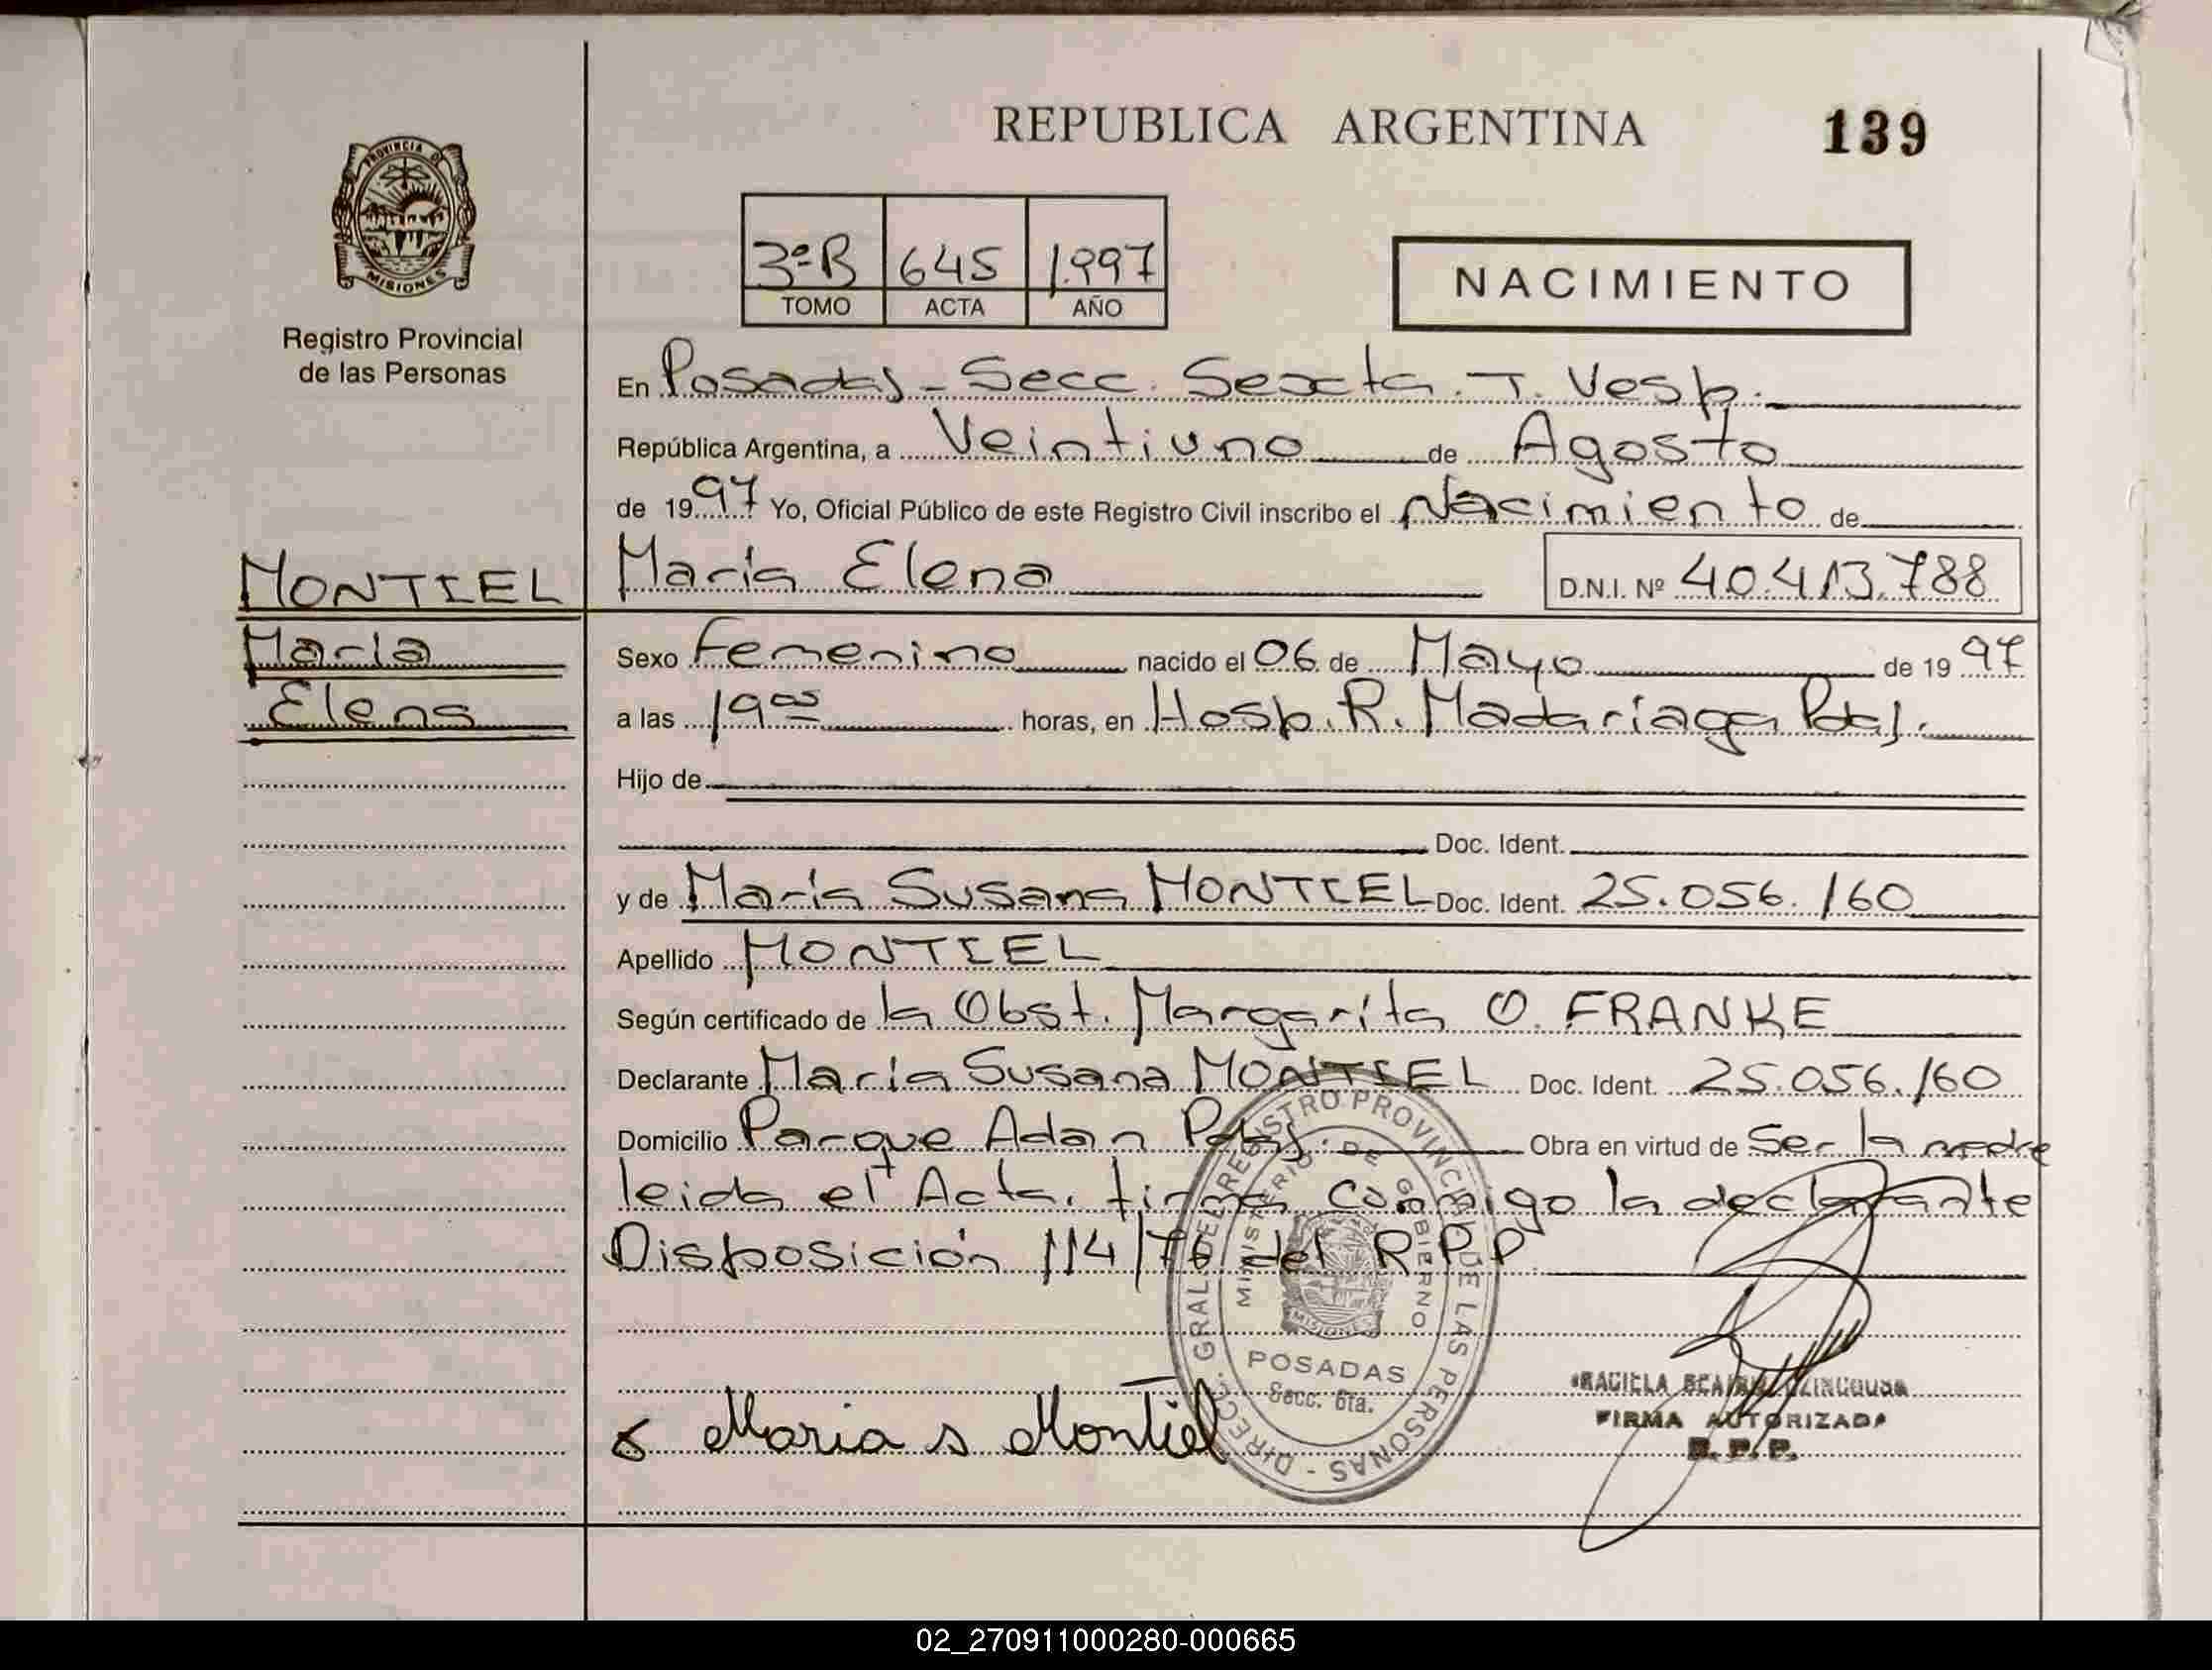 REPUBLICA ARGENTINA 139
PROVINCIA DE
MISIONES
Registro Provincial
de las Personas
3ºB 645 1.997
TOMO ACTA AÑO
NACIMIENTO
En Posadas - Secc. Sexta. T. Vesp.
República Argentina, a Veintiuno de Agosto
de 1997 Yo, Oficial Público de este Registro Civil inscribo el Nacimiento de
MONTIEL
María
Elena
María Elena D.N.I. Nº 40.413.788
Sexo Femenino nacido el 06 de Mayo de 1997
a las 19 horas, en Hosp. R. Madariaga Pdas.
Hijo de
Doc. Ident.
y de María Susana MONTIEL Doc. Ident. 25.056.160
Apellido MONTIEL
Según certificado de la Obst. Margarita O. FRANKE
Declarante María Susana MONTIEL Doc. Ident. 25.056.160
Domicilio Parque Adan Pdas. Obra en virtud de Ser la madre
leida el Acta. firma conmigo la declarante
Disposición 114/76 del R.P.P
DIRECC. GRAL. DEL REGISTRO PROVINCIAL DE LAS PERSONAS -
MINISTERIO DE GOBIERNO
MISIONES
POSADAS
Secc. 6ta.
Maria s Montiel
FIRMA AUTORIZADA
R. P. P.
02_270911000280-000665